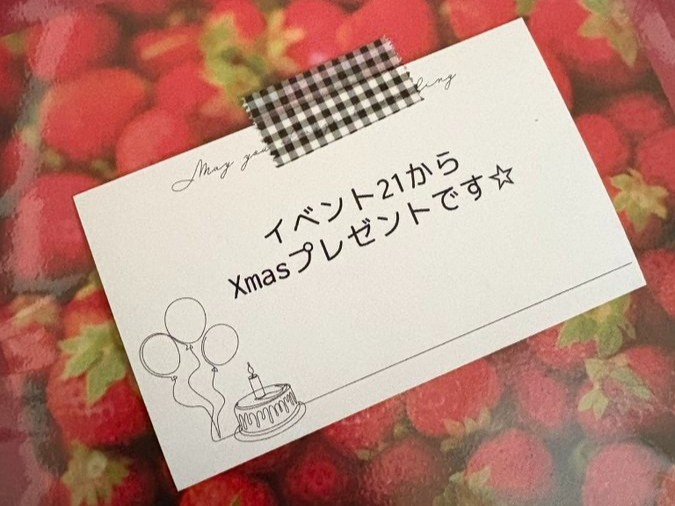 May
イベント21から
Xmasプレゼントです☆